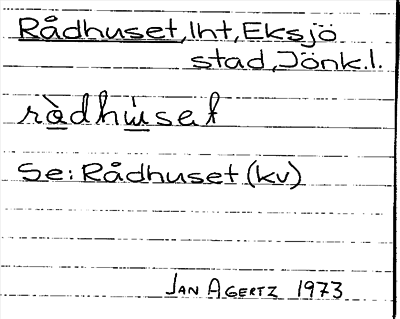 Rådhuset, lht, Eksjö
stad, Jönk.l.
rådhuset
Se: Rådhuset (kv)
JAN AGERTZ 1973